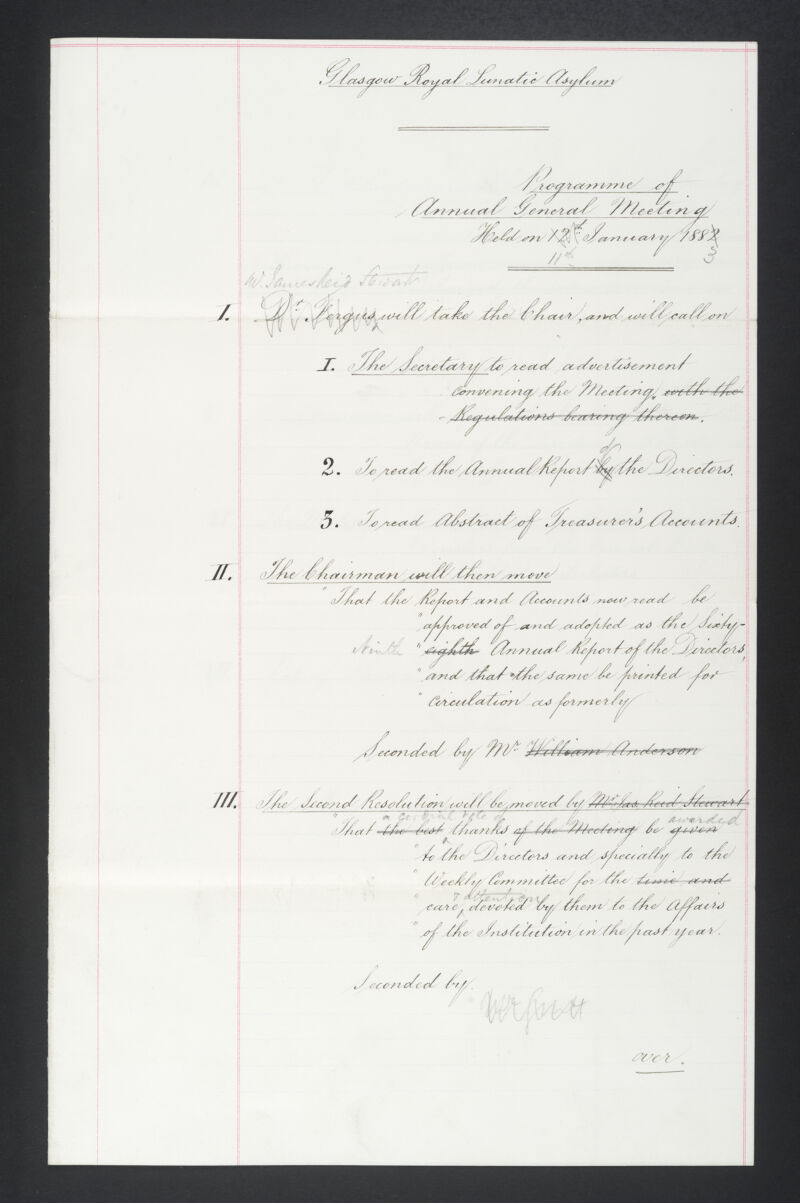 Glasgow Royal Lunatic Asylum
Programme of
Annual General Meeting
Held on 12th January 1882
11th 3
Mr James Reid Stewart
I. Dr. Fergus will take the Chair, and will call on
I. The Secretary to read advertisement
convening the Meeting, with the
Regulations bearing thereon.
of
2. To read the Annual Report by the Directors.
3. To read Abstract of Treasurer's Accounts.
II. The Chairman will then move
"That the Report and Accounts now read be
"approved of and adopted as the Sixty-
Ninth "eighth Annual Report of the Directors,
"and that the same be printed for
"circulation as formerly
Seconded by Mr William Anderson
III. The Second Resolution will be moved by Mr Jas. Reid Stewart
a cordial vote of awarded
"That the best thanks of the Meeting be given
"to the Directors and specially to the
"Weekly Committee for the time and
& attention
"care, devoted by them to the Affairs
"of the Institution in the past year.
Seconded by.
over.